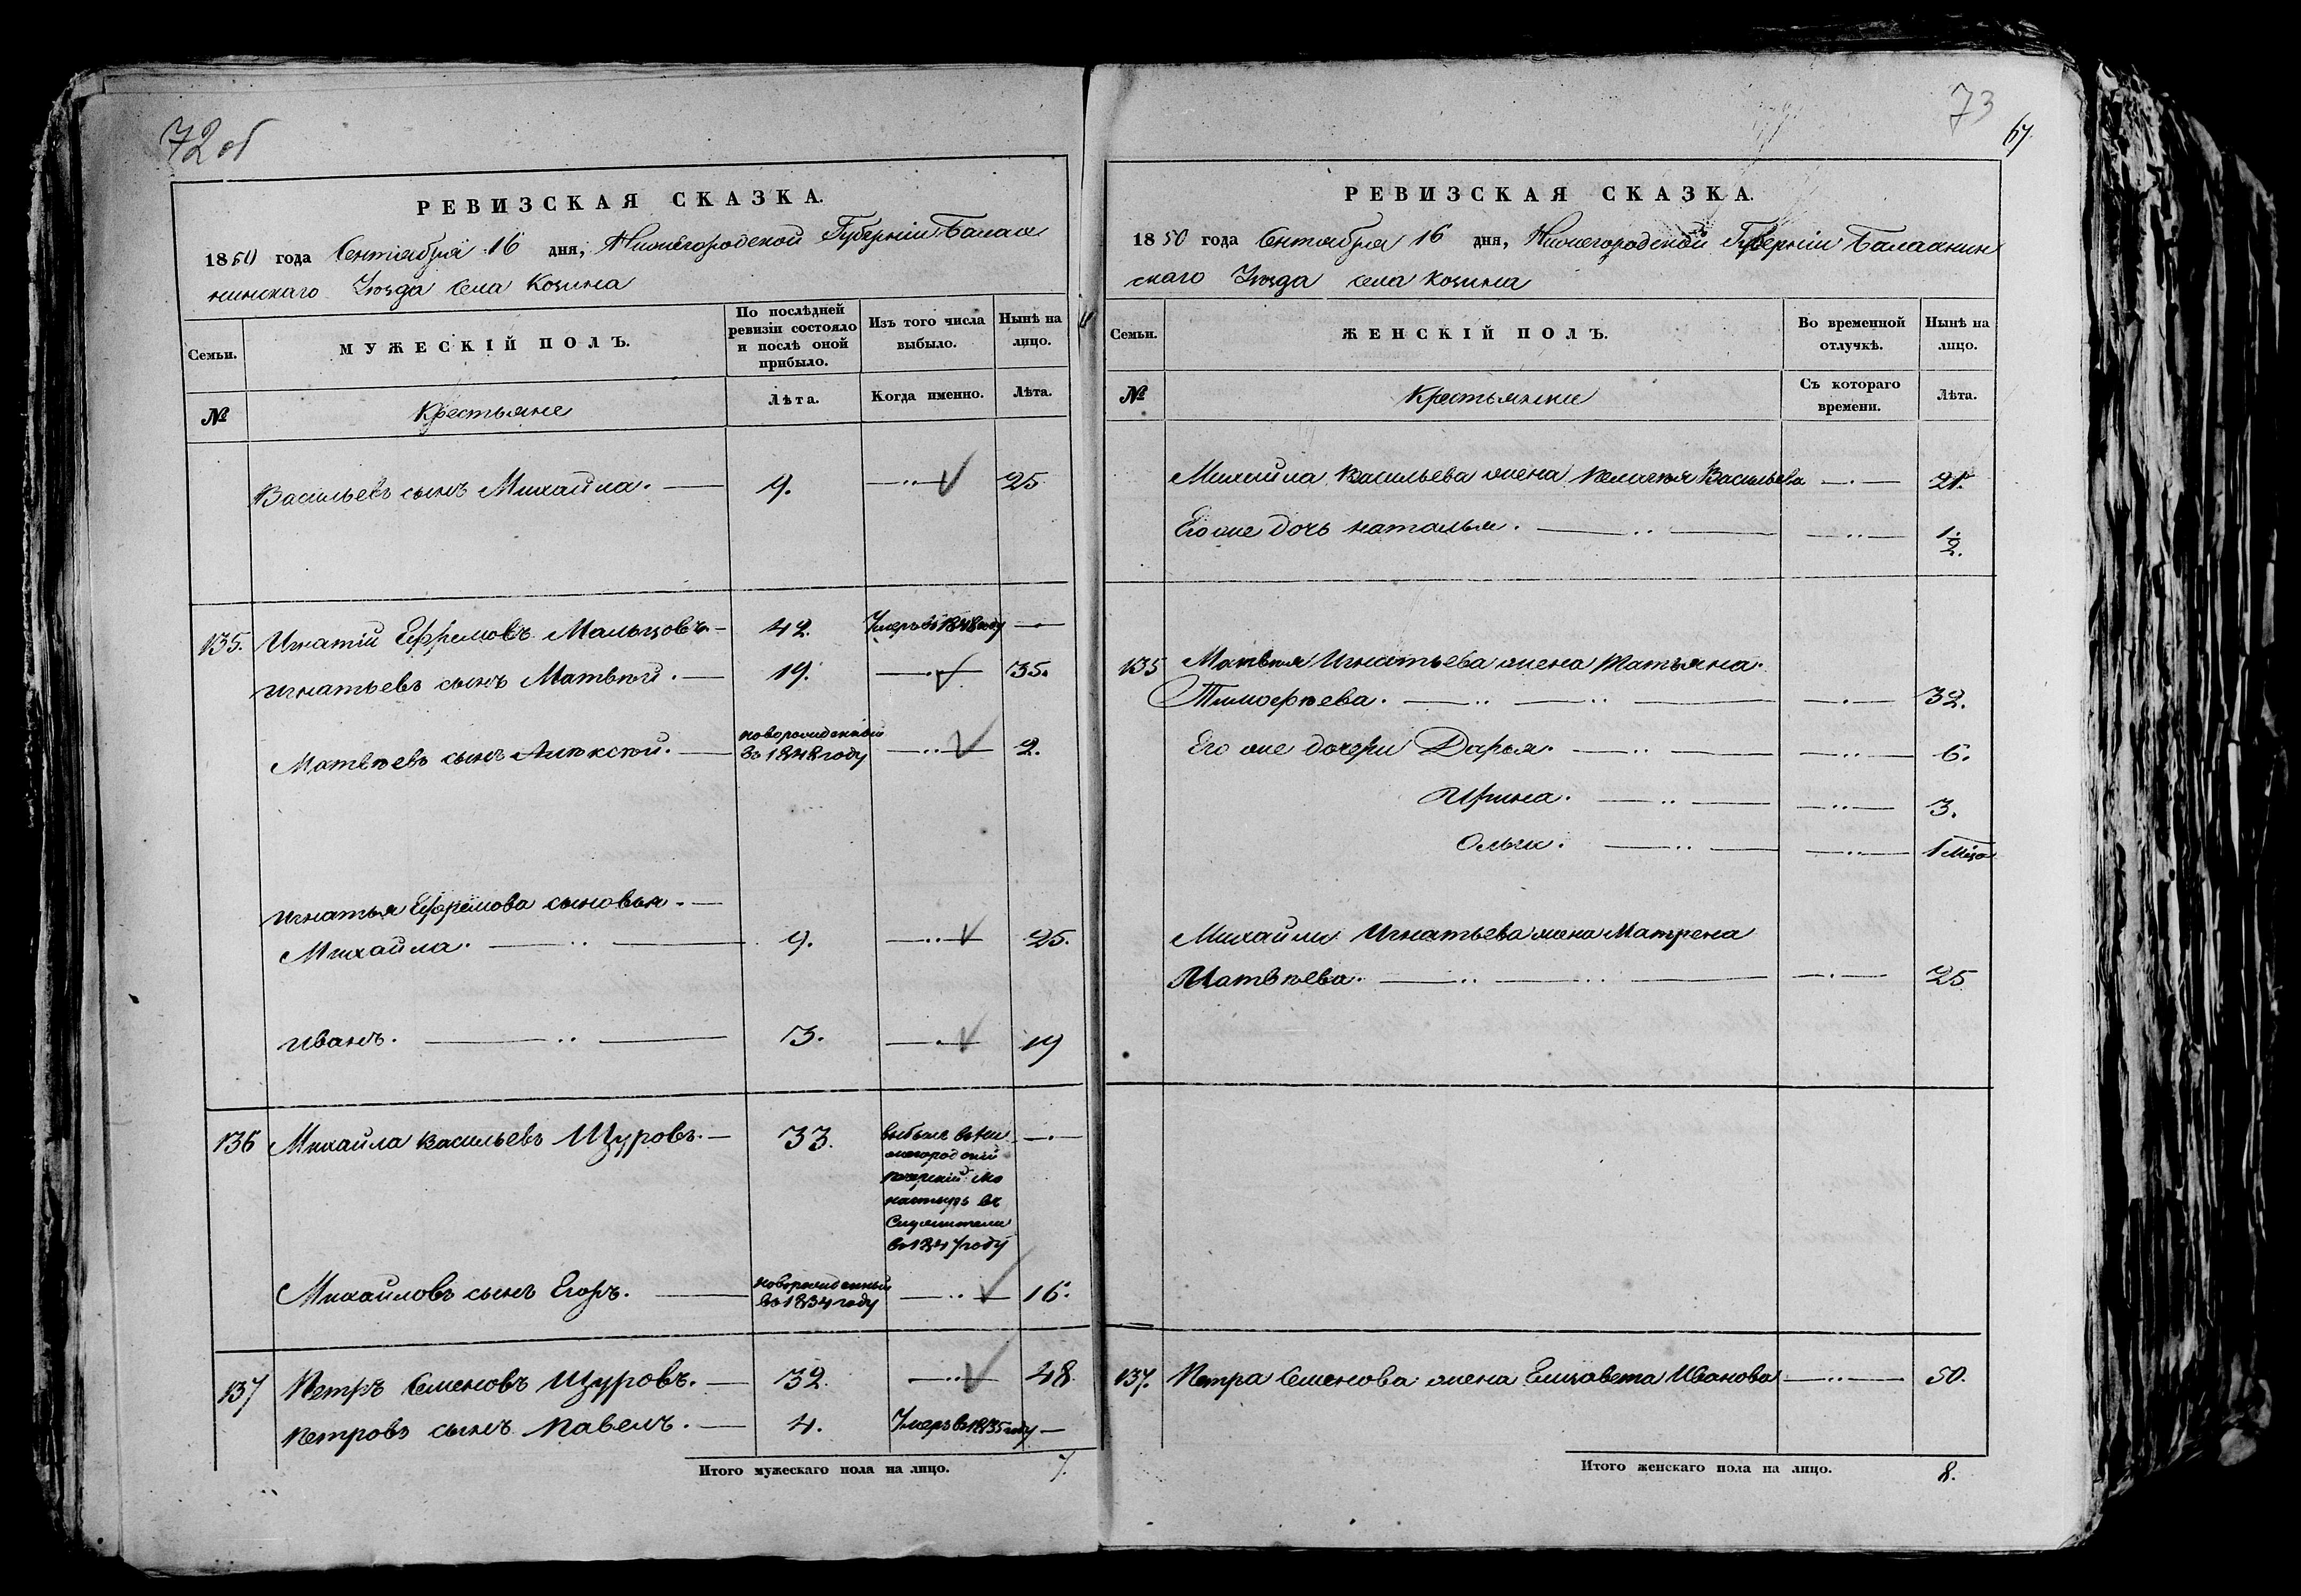 72 об
РЕВИЗСКАЯ СКАЗКА.
1850 года Сентября 16 дня, Нижегородской Губернiи Балах
нинскаго Уѣзда села Козина
Семьи.
МУЖЕСКIЙ ПОЛЪ.
По послѣдней
ревизiи состояло
и послѣ оной
прибыло.
Изъ того числа
выбыло.
Нынѣ на
лицо.
№
Крестьяне
Лѣта.
Когда именно.
Лѣта.
Васильевъ сынъ Михайла. 9. 25
135. Игнатiй Ефремовъ Мальцовъ. 42. Умеръ въ 1848 году
Игнатьевъ сынъ Матвѣй. 19. 35.
новорожденный
Матвѣевъ сынъ Алѣксѣй. въ 1848 году 2.
Игнатья Ефремова сыновья.
Михайла. 9. 25.
Иванъ. 3. 19
136 Михайла Васильевъ Щуровъ. 33. выбылъ въ Ни
жегородскiй
печерскiй мо
настырь въ
Служители
въ 1847 году
новорожденный
Михайловъ сынъ Егоръ. въ 1834 году 16.
137 Петръ Семеновъ Щуровъ. 32. 48
Петровъ сынъ Павелъ. 4. Умеръ въ 1835 году
Итого мужескаго пола на лицо. 7.
73
67
РЕВИЗСКАЯ СКАЗКА.
1850 года Сентября 16 дня, Нижегородской Губернiи Балахнин
скаго Уѣзда села Козина
Семьи.
ЖЕНСКIЙ ПОЛЪ.
Во временной
отлучкѣ.
Нынѣ на
лицо.
№
Крестьянки
Съ котораго
времени.
Лѣта.
Михайла Васильева жена Пелагѣя Васильева 21.
Его же дочь Наталья. 1/2.
135 Матвѣя Игнатьева жена Татьяна.
Тимофѣева. 32.
Его же дочери Дарья. 6.
Ирина. 3.
Ольга. 1 мѣся
Михайлы Игнатьева жена Матрена
Матвѣева. 25
137. Петра Семенова жена Елизавета Иванова 50.
Итого женскаго пола на лицо. 8.